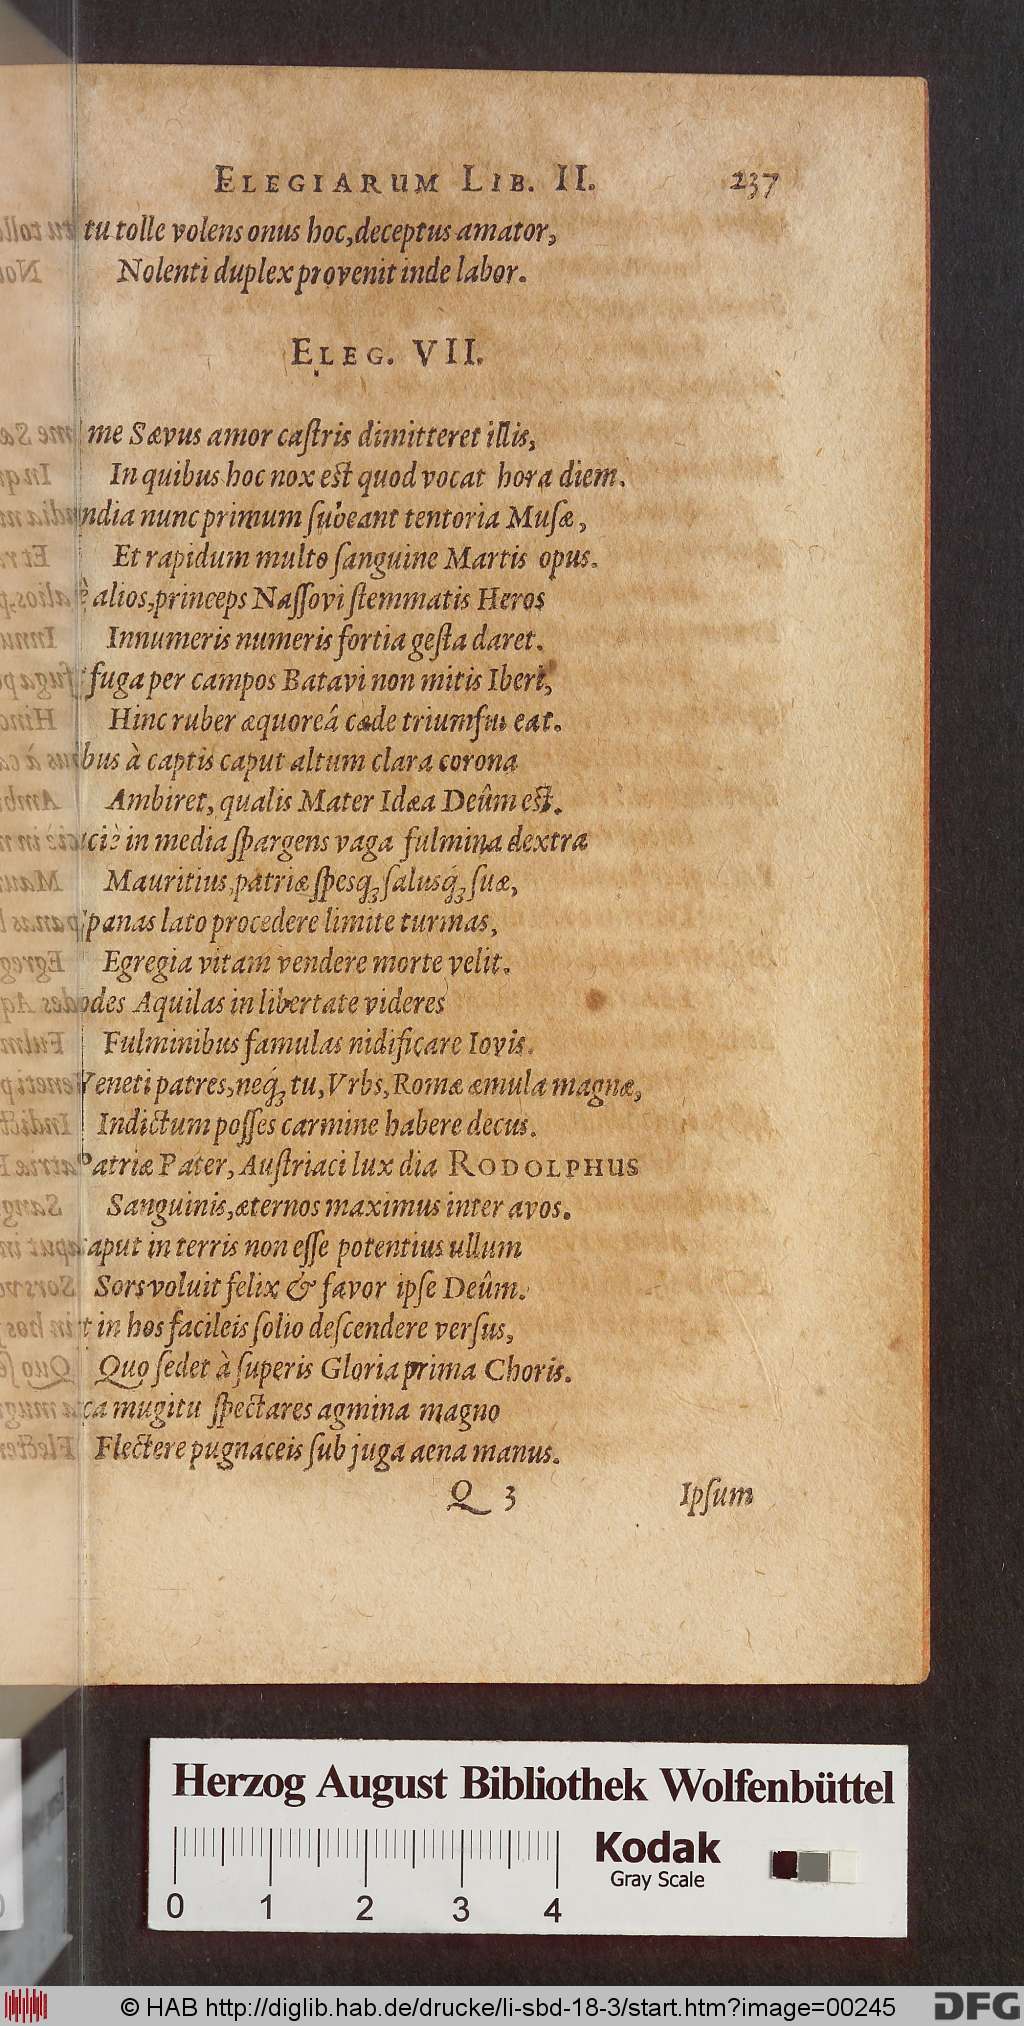 ELEGIARUM LIB. II. 237
tu tolle volens onus hoc, deceptus amator,
Nolenti duplex provenit inde labor.
ELEG. VII.
me Sævus amor caſtris dimitteret illis,
In quibus hoc nox eſt quod vocat hora diem.
nunc primum ſubeant tentoria Muſæ,
Et rapidum multo ſanguine Martis opus.
alios, princeps Naſſovi ſtemmatis Heros
Innumeris numeris fortia geſta daret.
fuga per campos Batavi non mitis Iberi,
Hinc ruber æquoreâ cæde triumfus eat.
bus à captis caput altum clara corona
Ambiret, qualis Mater Idæa Deûm eſt.
in media ſpargens vaga fulmina dextra
Mauritius, patriæ ſpesq́; ſalusq́; ſuæ,
panas lato procedere limite turmas,
Egregia vitam vendere morte velit.
Aquilas in libertate videres
Fulminibus famulas nidificare Iovis.
Veneti patres, neq́; tu, Vrbs, Romæ æmula magnæ,
Indictum poſſes carmine habere decus.
Patriæ Pater, Auſtriaci lux dia RODOLPHUS
Sanguinis, æternos maximus inter avos.
caput in terris non eſſe potentius ullum
Sors voluit felix & favor ipſe Deûm.
t in hos facileis ſolio deſcendere verſus,
Quo ſedet à ſuperis Gloria prima Choris.
ca mugitu ſpectares agmina magno
Flectere pugnaceis ſub juga aena manus.
Q 3 Ipſum
Herzog August Bibliothek Wolfenbüttel
Kodak
Gray Scale
0 1 2 3 4
© HAB http://diglib.hab.de/drucke/li-sbd-18-3/start.htm?image=00245 DFG